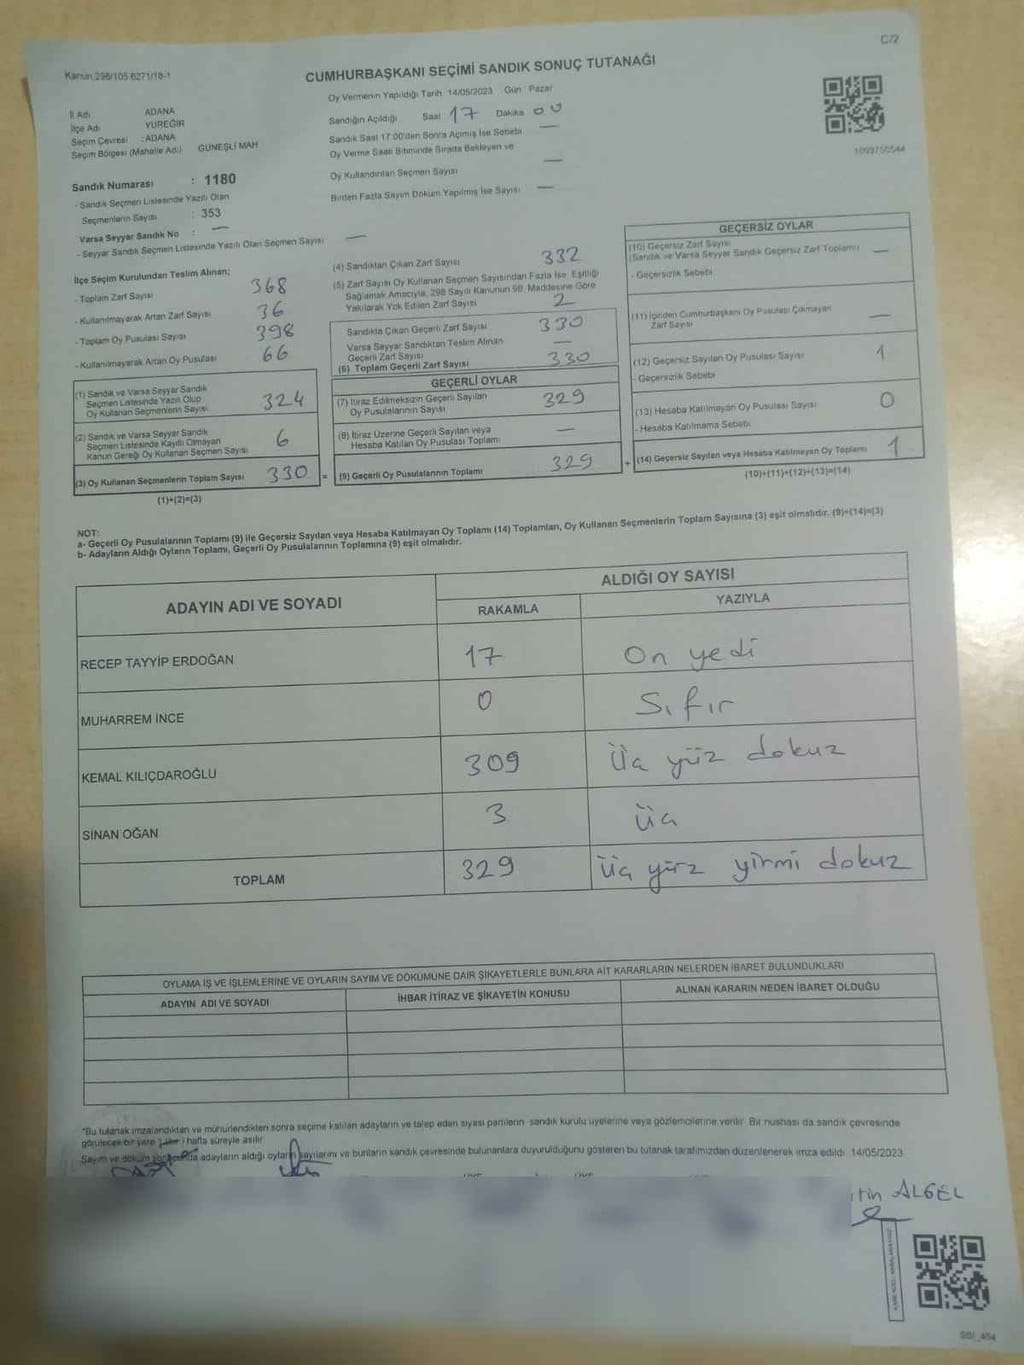 C/2
Kanun:298/105 6271/18-1
CUMHURBAŞKANI SEÇİMİ SANDIK SONUÇ TUTANAĞI
Oy Vermenin Yapıldığı Tarih 14/05/2023 Gün Pazar
İl Adı : ADANA
İlçe Adı YÜREĞİR
Seçim Çevresi : ADANA
Seçim Bölgesi (Mahalle Adı) GÜNEŞLİ MAH
Sandığın Açıldığı Saat 17 Dakika 00
Sandık Saat 17.00'den Sonra Açılmış İse Sebebi —
Oy Verme Saati Bitiminde Sırada Bekleyen ve
Oy Kullandırılan Seçmen Sayısı —
Birden Fazla Sayım Döküm Yapılmış İse Sayısı —
Sandık Numarası : 1180
- Sandık Seçmen Listesinde Yazılı Olan
Seçmenlerin Sayısı : 353
Varsa Seyyar Sandık No : —
- Seyyar Sandık Seçmen Listesinde Yazılı Olan Seçmen Sayısı —
İlçe Seçim Kurulundan Teslim Alınan;
- Toplam Zarf Sayısı 368
- Kullanılmayarak Artan Zarf Sayısı 36
- Toplam Oy Pusulası Sayısı 398
- Kullanılmayarak Artan Oy Pusulası 66
(1) Sandık ve Varsa Seyyar Sandık
Seçmen Listesinde Yazılı Olup
Oy Kullanan Seçmenlerin Sayısı 324
(2) Sandık ve Varsa Seyyar Sandık
Seçmen Listesinde Kayıtlı Olmayan
Kanun Gereği Oy Kullanan Seçmen Sayısı 6
(3) Oy Kullanan Seçmenlerin Toplam Sayısı 330 =
(1)+(2)=(3)
(4) Sandıktan Çıkan Zarf Sayısı 332
(5) Zarf Sayısı Oy Kullanan Seçmen Sayısından Fazla İse Eşitliği
Sağlamak Amacıyla, 298 Sayılı Kanunun 98. Maddesine Göre
Yakılarak Yok Edilen Zarf Sayısı 2
Sandıkta Çıkan Geçerli Zarf Sayısı 330
Varsa Seyyar Sandıktan Teslim Alınan
Geçerli Zarf Sayısı —
(6) Toplam Geçerli Zarf Sayısı 330
GEÇERLİ OYLAR
(7) İtiraz Edilmeksizin Geçerli Sayılan
Oy Pusulalarının Sayısı 329
(8) İtiraz Üzerine Geçerli Sayılan veya
Hesaba Katılan Oy Pusulası Toplamı —
(9) Geçerli Oy Pusulalarının Toplamı 329 +
GEÇERSİZ OYLAR
(10) Geçersiz Zarf Sayısı
(Sandık ve Varsa Seyyar Sandık Geçersiz Zarf Toplamı) —
- Geçersizlik Sebebi
(11) İçinden Cumhurbaşkanı Oy Pusulası Çıkmayan
Zarf Sayısı —
(12) Geçersiz Sayılan Oy Pusulası Sayısı 1
- Geçersizlik Sebebi
(13) Hesaba Katılmayan Oy Pusulası Sayısı 0
- Hesaba Katılmama Sebebi
(14) Geçersiz Sayılan veya Hesaba Katılmayan Oy Toplamı 1
(10)+(11)+(12)+(13)=(14)
NOT:
a- Geçerli Oy Pusulalarının Toplamı (9) ile Geçersiz Sayılan veya Hesaba Katılmayan Oy Toplamı (14) Toplamları, Oy Kullanan Seçmenlerin Toplam Sayısına (3) eşit olmalıdır. (9)+(14)=(3)
b- Adayların Aldığı Oyların Toplamı, Geçerli Oy Pusulalarının Toplamına (9) eşit olmalıdır.
ADAYIN ADI VE SOYADI
ALDIĞI OY SAYISI
RAKAMLA YAZIYLA
RECEP TAYYİP ERDOĞAN 17 On yedi
MUHARREM İNCE 0 Sıfır
KEMAL KILIÇDAROĞLU 309 Üç yüz dokuz
SİNAN OĞAN 3 üç
TOPLAM 329 üç yüz yirmi dokuz
OYLAMA İŞ VE İŞLEMLERİNE VE OYLARIN SAYIM VE DÖKÜMÜNE DAİR ŞİKAYETLERLE BUNLARA AİT KARARLARIN NELERDEN İBARET BULUNDUKLARI
ADAYIN ADI VE SOYADI İHBAR İTİRAZ VE ŞİKAYETİN KONUSU ALINAN KARARIN NEDEN İBARET OLDUĞU
*Bu tutanak imzalandıktan ve mühürlendikten sonra seçime katılan adayların ve talep eden siyasi partilerin sandık kurulu üyelerine veya gözlemcilerine verilir. Bir nushası da sandık çevresinde
görülecek bir yere hafta süreyle asılır.
Sayım ve döküm sonucunda adayların aldığı oyların sayılarını ve bunların sandık çevresinde bulunanlara duyurulduğunu gösteren bu tutanak tarafımızdan düzenlenerek imza edildi. 14/05/2023
ALGEL